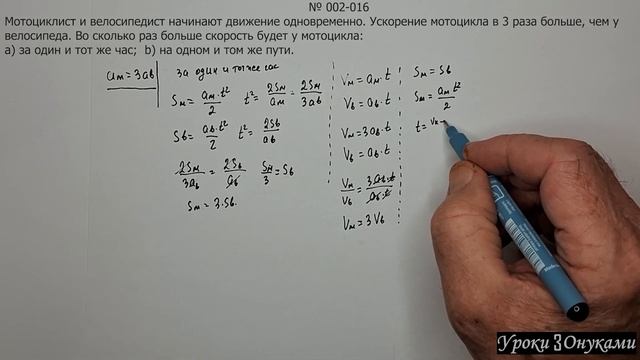 № 002-016
Мотоциклист и велосипедист начинают движение одновременно. Ускорение мотоцикла в 3 раза больше, чем у
велосипеда. Во сколько раз больше скорость будет у мотоцикла:
а) за один и тот же час; b) на одном и том же пути.
aм = 3aв
за один и тот же час
Sм = aм·t²/2 t² = 2Sм/aм = 2Sм/3aв
Sв = aв·t²/2 t² = 2Sв/aв
2Sм/3aв = 2Sв/aв Sм/3 = Sв
Sм = 3·Sв
Vм = aм·t
Vв = aв·t
Vм = 3aв·t
Vв = aв·t
Vм/Vв = 3·aв·t/aв·t
Vм = 3Vв
Sм = Sв
Sм = aм t²/2
t =
Уроки З Онуками